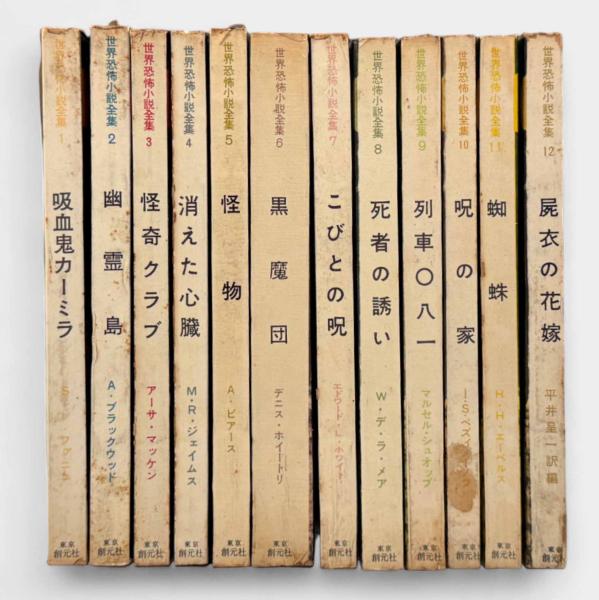 世界恐怖小説全集 1
吸血鬼カーミラ
東京
創元社
世界恐怖小説全集 2
幽霊島
A・ブラックウッド
東京
創元社
世界恐怖小説全集 3
怪奇クラブ
アーサ・マッケン
東京
創元社
世界恐怖小説全集 4
消えた心臓
M・R・ジェイムス
東京
創元社
世界恐怖小説全集 5
怪物
A・ビアース
東京
創元社
世界恐怖小説全集 6
黒魔団
デニス・ホイートリ
東京
創元社
世界恐怖小説全集 7
こびとの呪
エドワード・L・ホワイト
東京
創元社
世界恐怖小説全集 8
死者の誘い
W・デ・ラ・メア
東京
創元社
世界恐怖小説全集 9
列車〇八一
マルセル・シュオップ
東京
創元社
世界恐怖小説全集 10
呪の家
東京
創元社
世界恐怖小説全集 11
蜘蛛
H・H・エーベルス
東京
創元社
世界恐怖小説全集 12
屍衣の花嫁
平井呈一訳編
東京
創元社